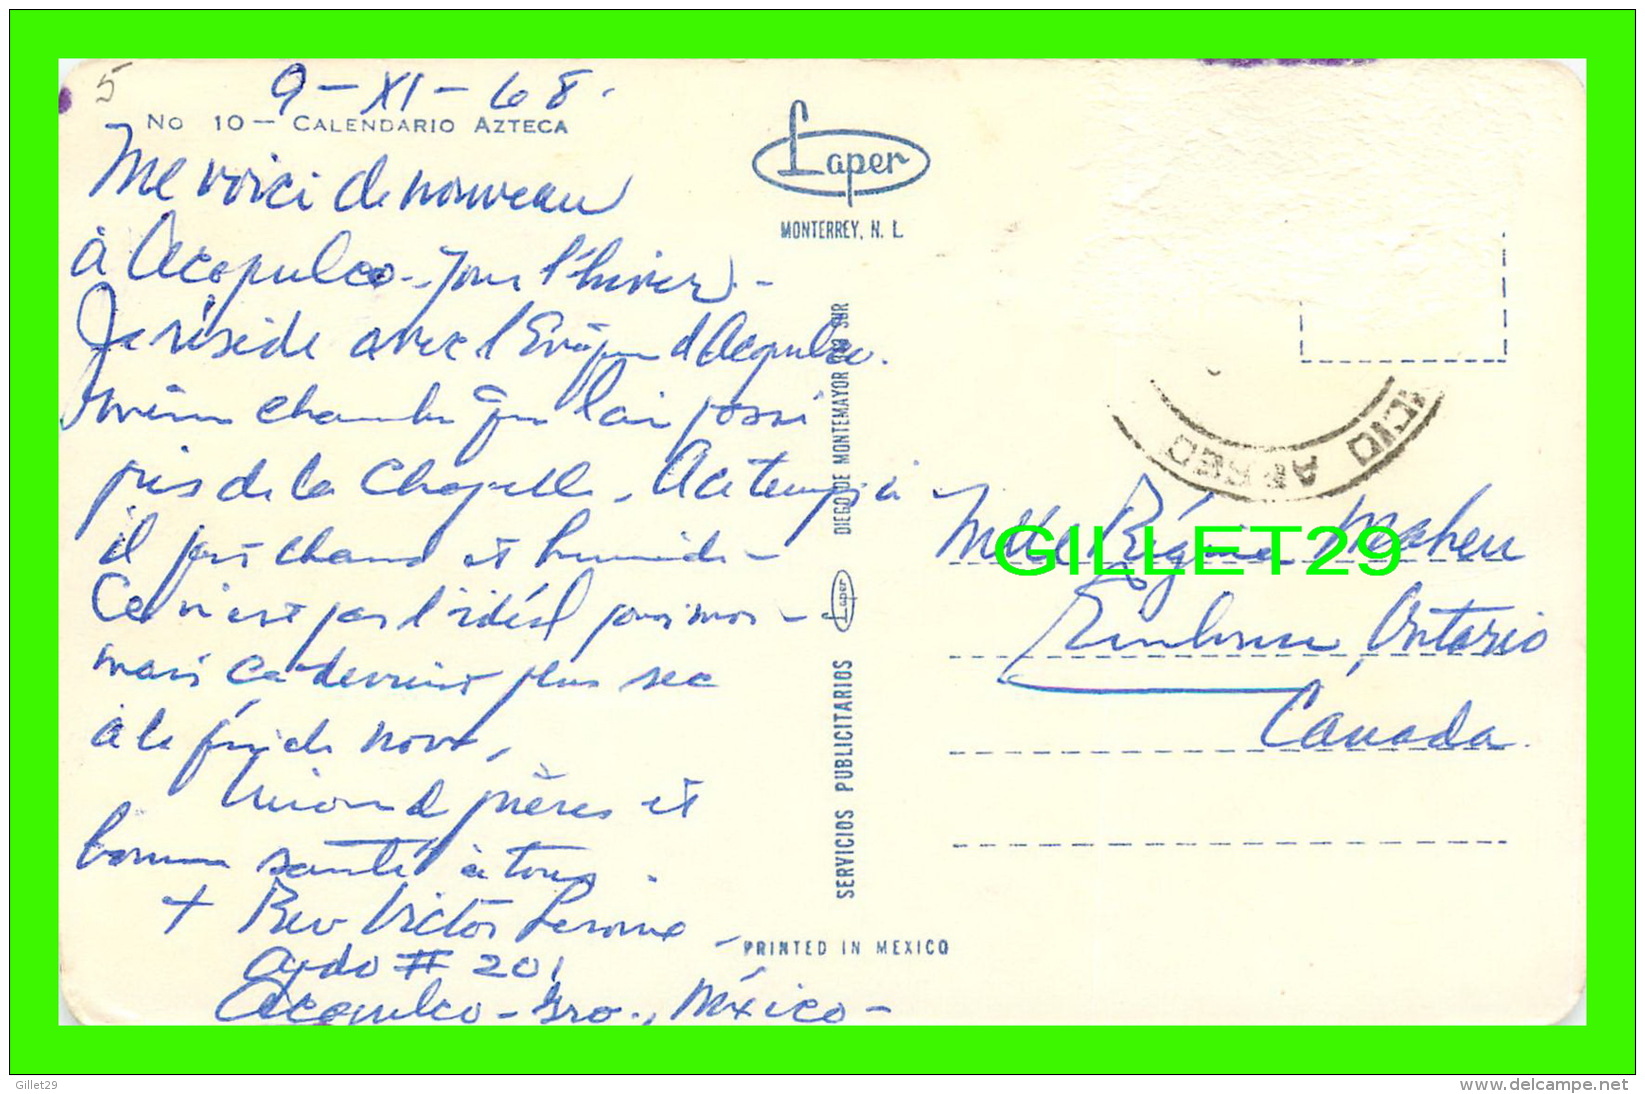 5
9-XI-68.
No 10 — CALENDARIO AZTECA
Me voici de nouveau
à Acapulco - pour l'hiver. -
Je réside avec l'Evêque d'Acapulco.
même chambre que l'an passé
près de la Chapelle.
il fait chaud et humide -
Ce n'est pas l'idéal pour moi -
mais ça devient plus sec
à la fin de nov.
Union de prières et
bonne santé à tous.
+ Rev Victor
Apdo # 201
Acapulco - Gro., México -
Laper
MONTERREY, N. L.
DIEGO DE MONTEMAYOR SUR
Laper
SERVICIOS PUBLICITARIOS
PRINTED IN MEXICO
AEREO
Mlle Régina Maheu
Embrun, Ontario
Canada.
GILLET29
Gillet29
www.delcampe.net